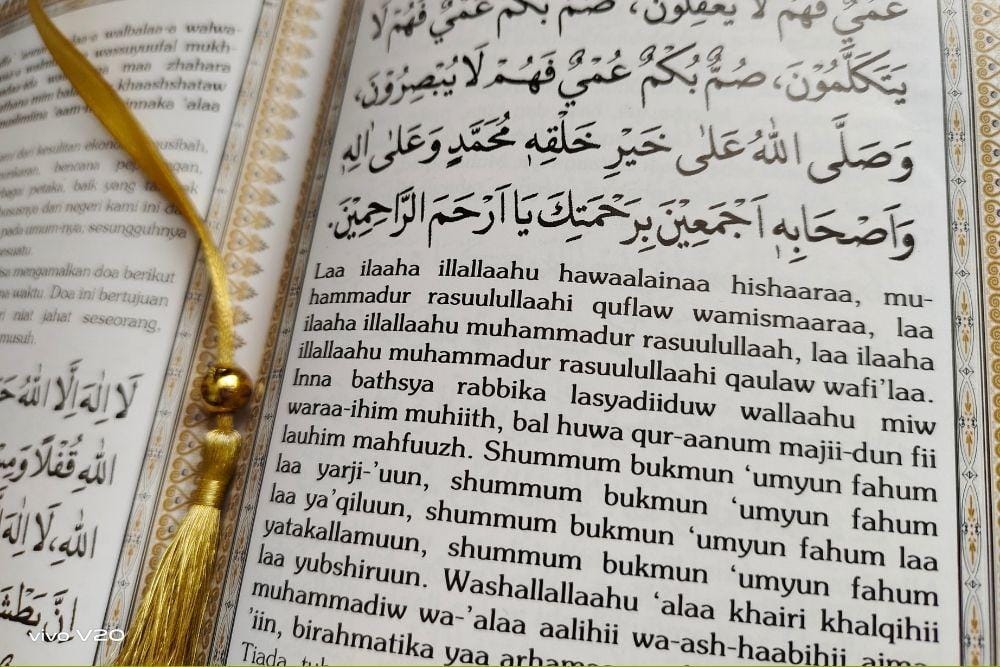 alaa-e walbalaa-e walwa-
wassuyuufal mukh-
maa zhahara
khaashshataw
innaka 'alaa
dari kesulitan ekonomi, musibah,
bencana
petaka, baik yang
dari negeri kami ini
pada umum-nya, sesungguhnya
sesuatu.
bisa mengamalkan doa berikut
waktu. Doa ini bertujuan
niat jahat seseorang,
musuh.
لَا اِلٰهَ اِلَّا اللهُ
اللهِ قُفْلًا
اللهِ، لَا اِلٰهَ
اِنَّ بَطْشَ
عُمْيٌ فَهُمْ لَا يَعْقِلُوْنَ، صُمٌّ بُكْمٌ عُمْيٌ فَهُمْ لَا
يَتَكَلَّمُوْنَ، صُمٌّ بُكْمٌ عُمْيٌ فَهُمْ لَا يُبْصِرُوْنَ،
وَصَلَّى اللهُ عَلٰى خَيْرِ خَلْقِهٖ مُحَمَّدٍ وَعَلٰى اٰلِهٖ
وَاَصْحَابِهٖ اَجْمَعِيْنَ بِرَحْمَتِكَ يَا اَرْحَمَ الرَّاحِمِيْنَ.
Laa ilaaha illallaahu hawaalainaa hishaaraa, mu-
hammadur rasuulullaahi quflaw wamismaaraa, laa
ilaaha illallaahu muhammadur rasuulullaah, laa ilaaha
illallaahu muhammadur rasuulullaahi qaulaw wafi'laa.
Inna bathsya rabbika lasyadiiduw wallaahu miw
waraa-ihim muhiith, bal huwa qur-aanum majii-dun fii
lauhim mahfuuzh. Shummum bukmun 'umyun fahum
laa yarji-'uun, shummum bukmun 'umyun fahum
laa ya'qiluun, shummum bukmun 'umyun fahum laa
yatakallamuun, shummum bukmun 'umyun fahum
laa yubshiruun. Washallallaahu 'alaa khairi khalqihii
muhammadiw wa-'alaa aalihii wa-ash-haabihii ajma
'iin, birahmatika yaa
Tiada
vivo V20